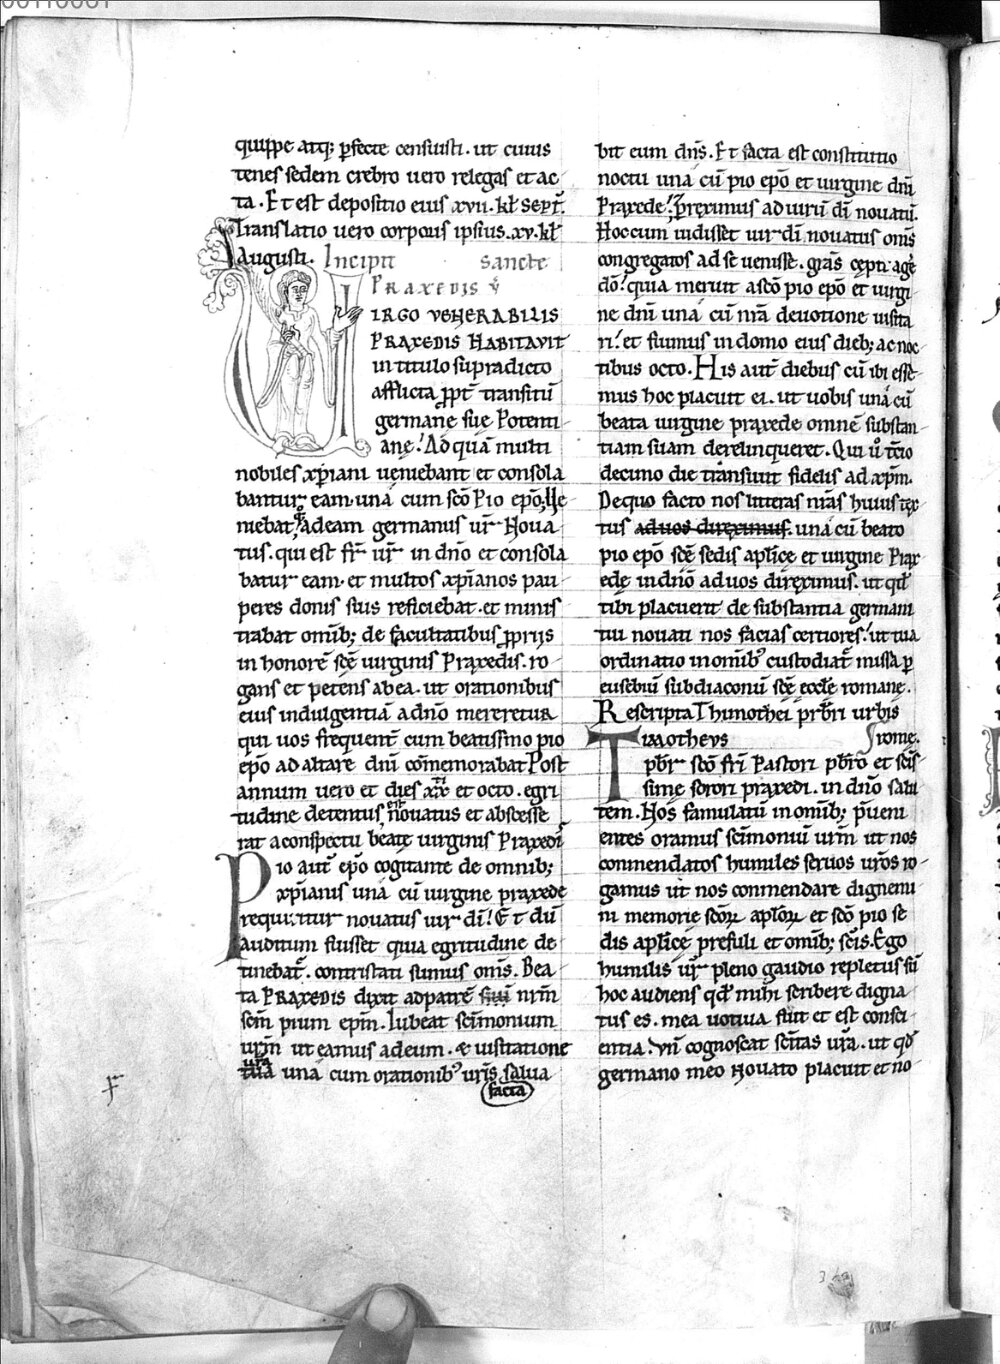 quippe atq; p̄fecte censuisti. ut cuius
tenes sedem crebro uero relegas et ac
ta. Et est depositio eius xvii. kł Sept̄.
Translatio uero corporis ipsius. xv. kł
Augusti. Incipit sancte
PRAXEDIS V̄
VIRGO VENERABILIS
PRAXEDIS HABITAVIT
in titulo supradicto
afflicta ꝓpt̄ transitū
germanę suę Potenti
anę. Ad quā multi
nobiles xp̄iani ueniebant et consola
bantur eam. una cum sc̄o Pio ep̄o. Ue
niebat ad eam germanus ur̄ Noua
tus. qui est fr̄ ur̄ in dn̄o et consola
batur eam. et multos xp̄ianos pau
peres donis suis reficiebat. et minis
trabat omib; de facultatibus ꝓpriis
in honorē sc̄ę uirginis Praxedis. ro
gans et petens ab ea. ut orationibus
eius indulgentiā a dn̄o mereretur
qui uos frequent̄ cum beatissimo pio
ep̄o ad altare dn̄i com̄emorabat Post
annum uero et dies xx et octo. egri
tudine detentus est nouatus et abscesse
rat a conspectu beatę uirginis Praxedis
Pio aut̄ ep̄o cogitante de omnib;
xp̄ianis una cū uirgine praxede
requiritur nouatus uir dī. Et dū
auditum fuisset quia egritudine de
tinebat̄. contristati sumus om̄s. Bea
ta PRAXEDIS dixit ad patrē nr̄m
sc̄m pium ep̄m. Iubeat sc̄imonium
ur̄m ut eamus ad eum. & uisitatione
ura
tua una cum orationib; ur̄is salua
facta
bit eum dn̄s. Et facta est constitutio
noctu una cū pio ep̄o et uirgine dn̄i
Praxede. Pręximus ad uirū dī nouatū.
Hoc cum uidisset uir dī nouatus om̄s
congregatos ad se uenisse. gr̄as cępit agę
dō. quia meruit a sc̄o pio ep̄o et uirgi
ne dn̄i una cū nr̄a deuotione uisita
ri. et fuimus in domo eius dieb; ac noc
tibus octo. His aut̄ diebus cū ibi esse
mus hoc placuit ei. ut uobis una cū
beata uirgine praxede omnē substan
tiam suam derelinqueret. Qui ů t̄cio
decimo die transiuit fidelis ad xp̄m.
De quo facto nos litteras nr̄as huius tex
tus ad uos diręximus. una cū beato
pio ep̄o sc̄ę sedis apl̄icę et uirgine Prax
edę in dn̄o ad uos diręximus. ut qd̄
tibi placuerit de substantia germani
tui nouati nos facias certiores. ut tua
ordinatio in omib; custodiat̄ missa p̄
eusebiū subdiaconū sc̄ę eccl̄e romane.
Rescripta Thimothei pr̄bri urbis
Timotheus romę.
pb̄r sc̄o fr̄i Pastori pb̄ro et sc̄is
sime sorori praxedi. in dn̄o salu
tem. Nos famulatū in omib; p̄ueni
entes oramus sc̄imoniū ur̄m ut nos
conmendatos humiles seruos ur̄os ro
gamus ut nos conmendare dignemi
ni memorie sc̄oꝝ apl̄oꝝ et sc̄o pio se
dis apl̄icę presuli et omib; sc̄is. Ego
humilis ur̄ pleno gaudio repletus sū
hoc audiens qd̄ mihi scribere digna
tus es. mea uotiua fuit et est consci
entia. Vn̄ cognoscat sc̄itas ur̄a. ut qd̄
germano meo Nouato placuit et no